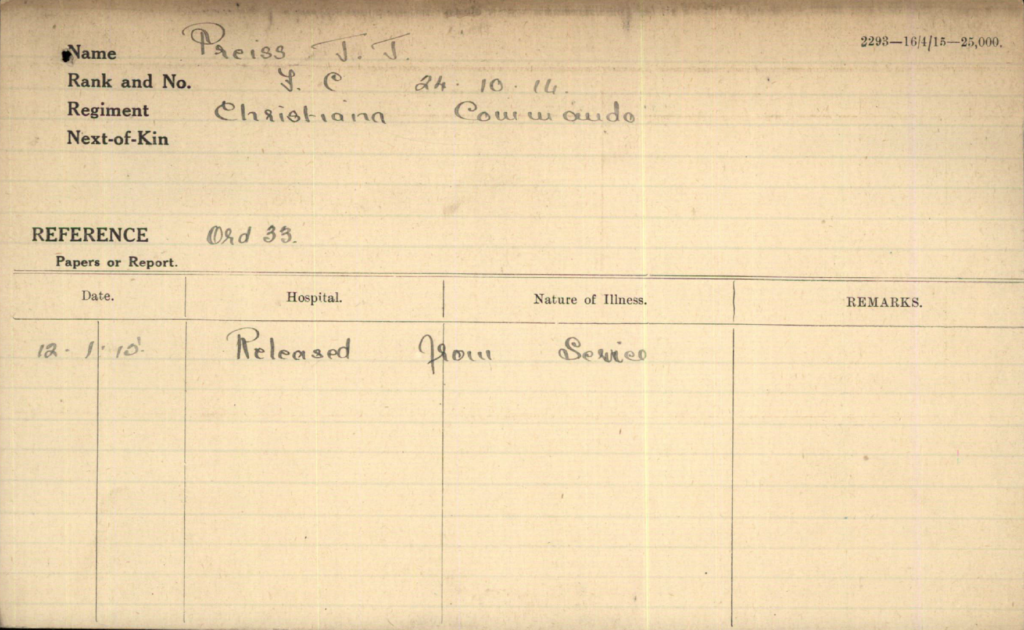 Name Preiss J. J.
2293—16/4/15—25,000.
Rank and No. F. C 24. 10. 14.
Regiment Christiana Commando
Next-of-Kin
REFERENCE Ord 33.
Papers or Report.
Date. Hospital. Nature of Illness. REMARKS.
12. 1. 15. Released from Service